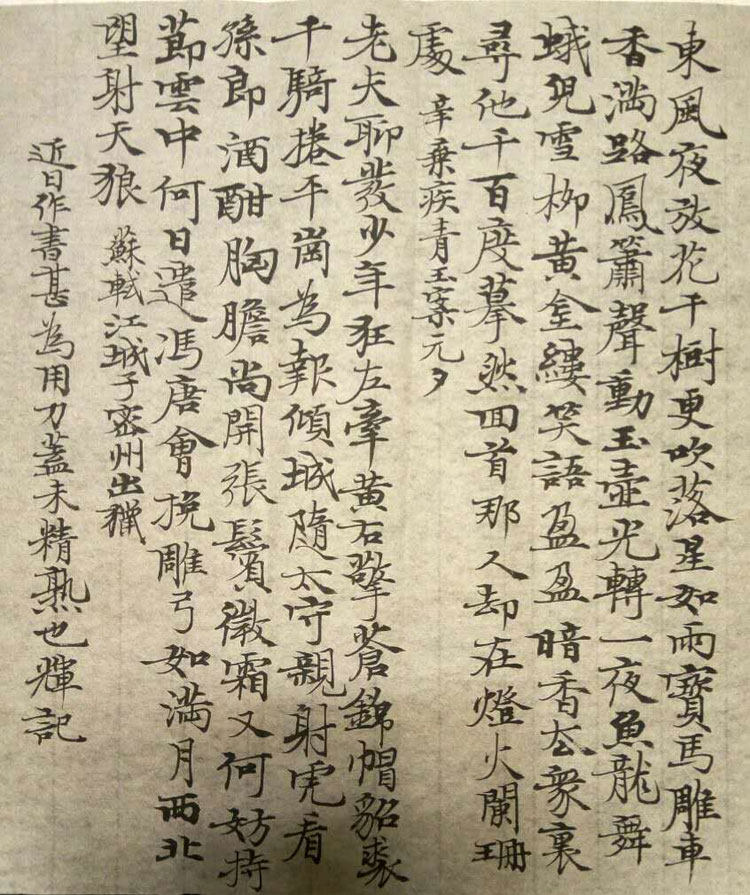 東風夜放花千樹更吹落星如雨寶馬雕車
香滿路鳳簫聲動玉壺光轉一夜魚龍舞
蛾兒雪柳黃金縷笑語盈盈暗香去衆裏
尋他千百度摹然回首那人却在燈火闌珊
處 辛棄疾青玉案元夕
老夫聊發少年狂左牽黃右擎蒼錦帽貂裘
千騎捲平崗為報傾城隨太守親射虎看
孫郎酒酣胸膽尚開張鬢微霜又何妨持
節雲中何日遣馮唐會挽雕弓如滿月西北
望射天狼 蘇軾江城子密州出獵
近日作書甚為用力蓋未精熟也輝記